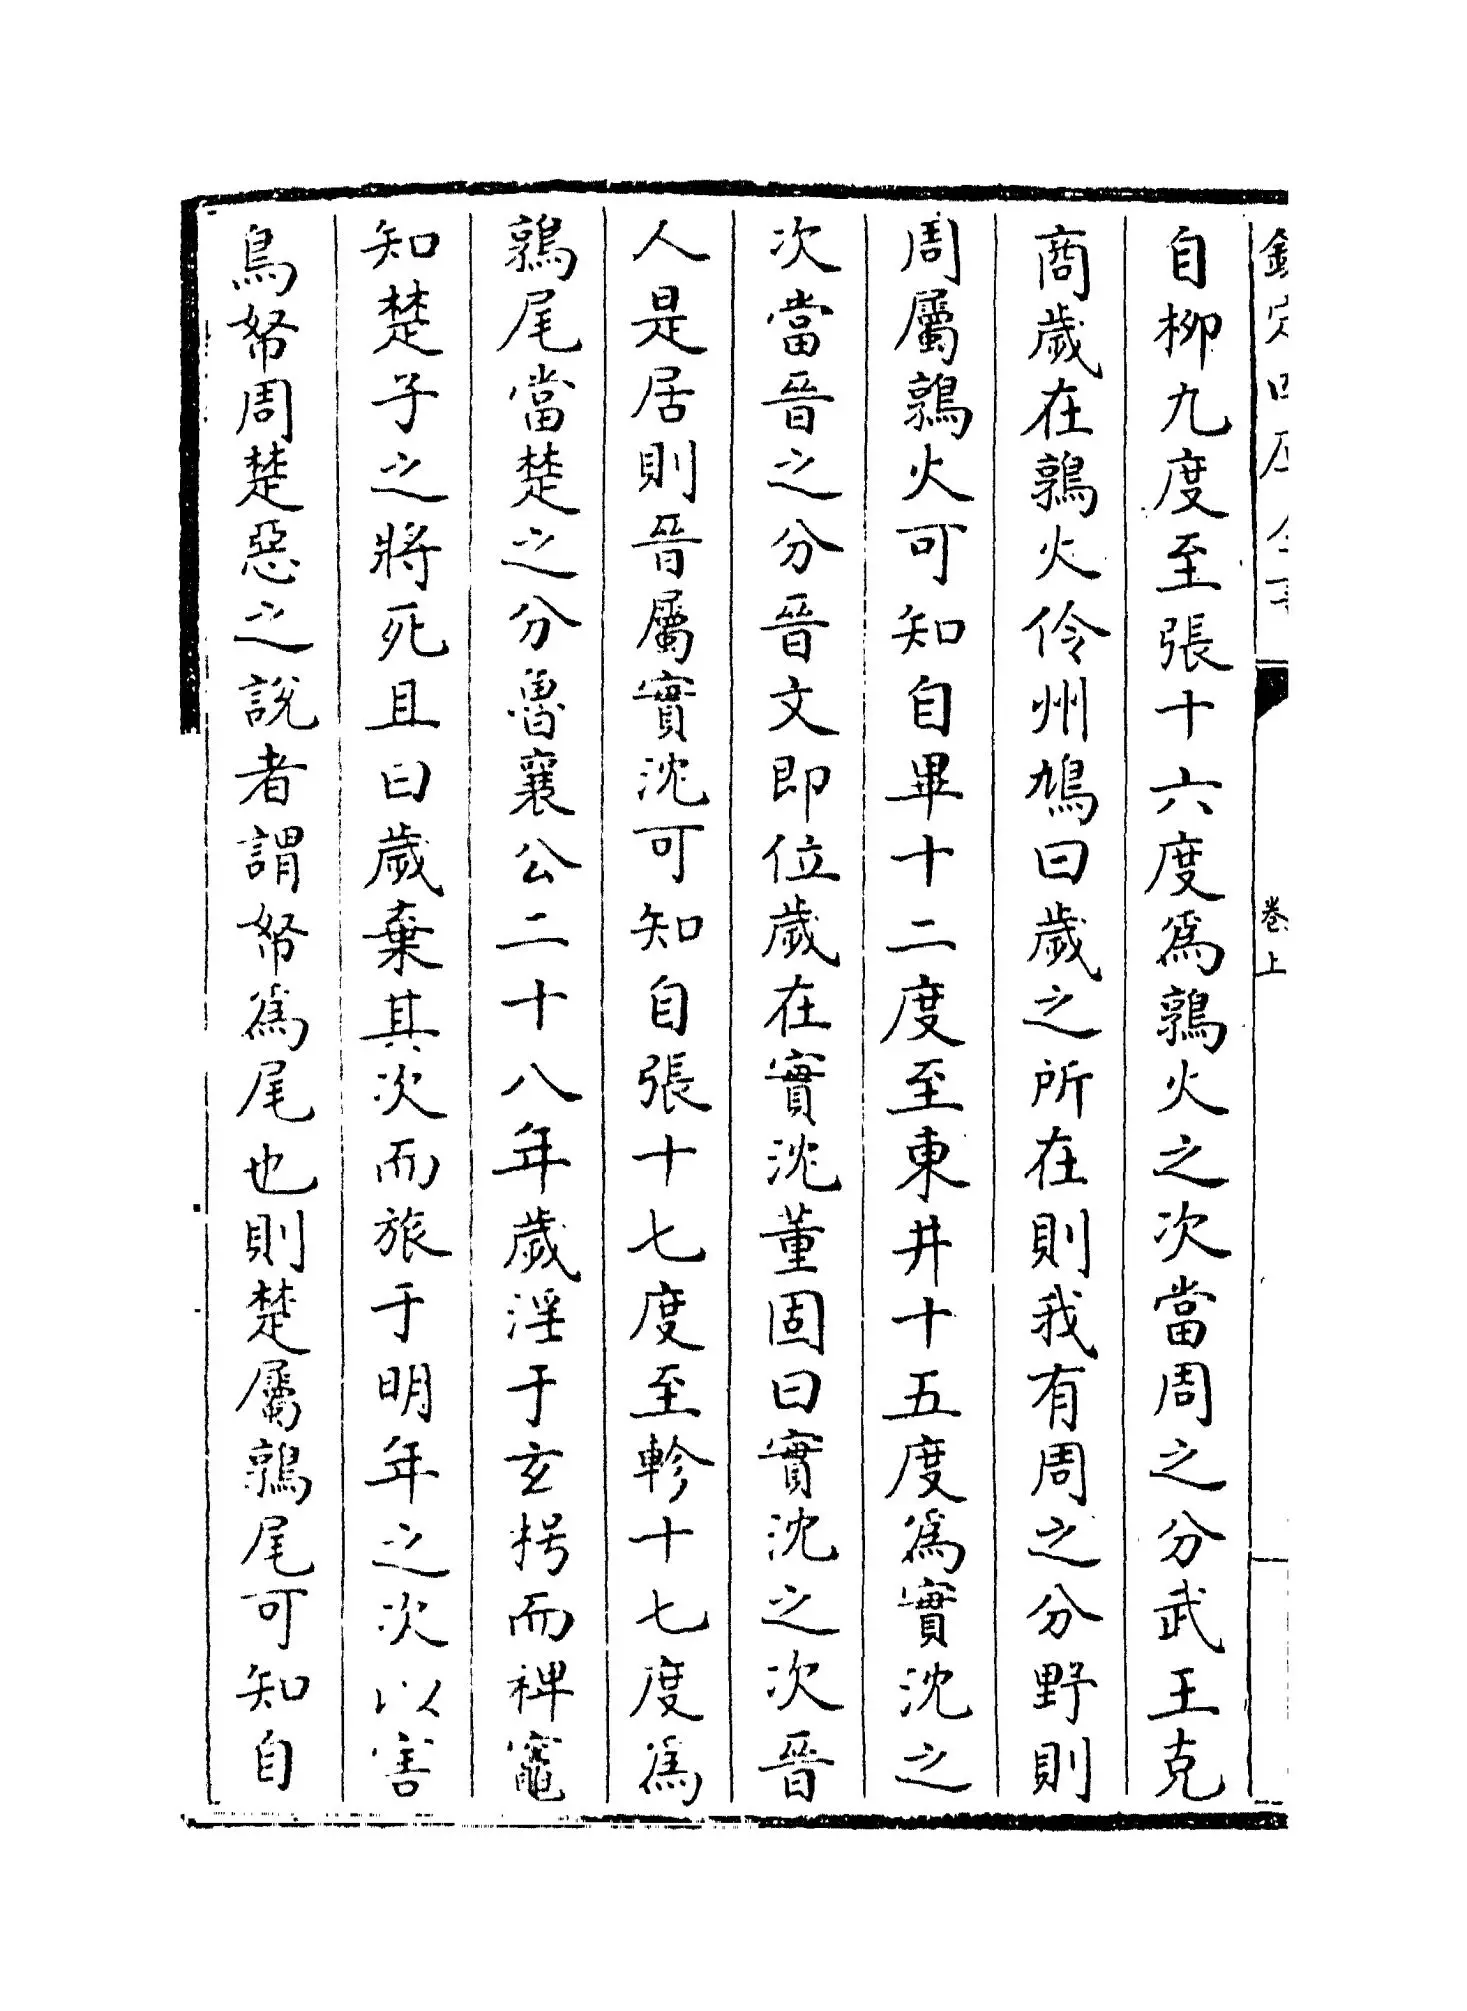 欽定四庫全書
卷上
自柳九度至張十六度爲鶉火之次當周之分武王克
商歲在鶉火伶州鳩曰歲之所在則我有周之分野則
周屬鶉火可知自畢十二度至東井十五度爲實沈之
次當晉之分晉文即位歲在實沈董固曰實沈之次晉
人是居則晉屬實沈可知自張十七度至軫十七度爲
鶉尾當楚之分魯襄公二十八年歲淫于玄枵而裨竈
知楚子之將死且曰歲棄其次而旅于明年之次以害
鳥帑周楚惡之說者謂帑爲尾也則楚屬鶉尾可知自